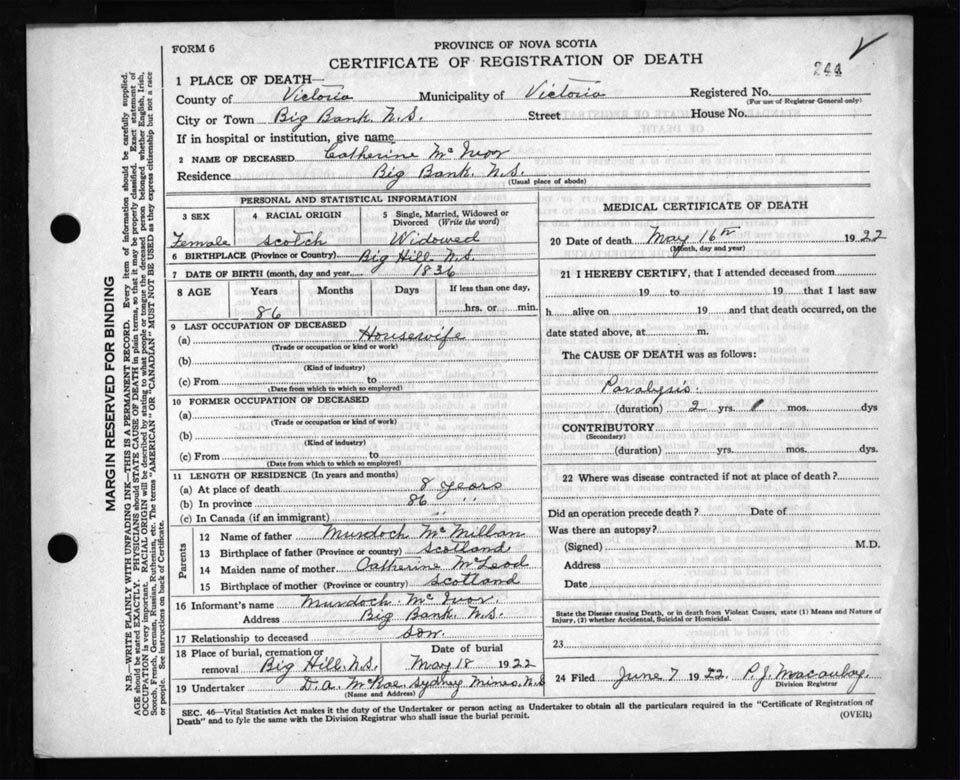 FORM 6
PROVINCE OF NOVA SCOTIA
CERTIFICATE OF REGISTRATION OF DEATH
244
1 PLACE OF DEATH—
County of Victoria Municipality of Victoria Registered No.
(For use of Registrar General only)
City or Town Big Bank. N.S. Street House No.
If in hospital or institution, give name
2 NAME OF DECEASED Catherine McIvor
Residence Big Bank. N.S.
(Usual place of abode)
PERSONAL AND STATISTICAL INFORMATION
3 SEX 4 RACIAL ORIGIN 5 Single, Married, Widowed or Divorced (Write the word)
Female Scotch Widowed
6 BIRTHPLACE (Province or Country) Big Hill N.S.
7 DATE OF BIRTH (month, day and year) 1836
8 AGE Years Months Days If less than one day,
86 hrs. or min.
9 LAST OCCUPATION OF DECEASED
(a) Housewife
(Trade or occupation or kind or work)
(b)
(Kind of industry)
(c) From to
(Date from which to which so employed)
10 FORMER OCCUPATION OF DECEASED
(a)
(Trade or occupation or kind of work)
(b)
(Kind of industry)
(c) From to
(Date from which to which so employed)
11 LENGTH OF RESIDENCE (In years and months)
(a) At place of death 8 years
(b) In province 86 "
(c) In Canada (if an immigrant) "
Parents
12 Name of father Murdoch McMillan
13 Birthplace of father (Province or country) Scotland
14 Maiden name of mother Catherine McLeod
15 Birthplace of mother (Province or country) Scotland
16 Informant's name Murdoch McIvor.
Address Big Bank. N.S.
17 Relationship to deceased son.
18 Place of burial, cremation or removal Big Hill. N.S. Date of burial May 18 1922
19 Undertaker D.A. McRae Sydney Mines, N.S.
(Name and Address)
MEDICAL CERTIFICATE OF DEATH
20 Date of death May 16th 1922
(Month, day and year)
21 I HEREBY CERTIFY, that I attended deceased from
19 to 19 that I last saw
h alive on 19 and that death occurred, on the
date stated above, at m.
The CAUSE OF DEATH was as follows:
Paralysis.
(duration) 2 yrs. mos. dys
CONTRIBUTORY
(Secondary)
(duration) yrs. mos. dys.
22 Where was disease contracted if not at place of death?
Did an operation precede death? Date of
Was there an autopsy?
(Signed) M.D.
Address
Date
State the Disease causing Death, or in death from Violent Causes, state (1) Means and Nature of
Injury, (2) whether Accidental, Suicidal or Homicidal.
23
24 Filed June 7 1922. P.J. Macaulay.
Division Registrar
SEC. 46—Vital Statistics Act makes it the duty of the Undertaker or person acting as Undertaker to obtain all the particulars required in the "Certificate of Registration of
Death" and to fyle the same with the Division Registrar who shall issue the burial permit.
(OVER)
MARGIN RESERVED FOR BINDING
N.B.—WRITE PLAINLY WITH UNFADING INK—THIS IS A PERMANENT RECORD. Every item of information should be carefully supplied.
AGE should be stated EXACTLY. PHYSICIANS should STATE CAUSE OF DEATH in plain terms, so that it may be properly classified. Exact statement of
OCCUPATION is very important. RACIAL ORIGIN will be described by stating to what people or tongue the deceased person belonged whether English, Irish,
Scotch, French, German, Russian, Ruthenian, etc. The terms "AMERICAN" OR "CANADIAN" MUST NOT BE USED as they express citizenship but not a race
or people. See instructions on back of Certificate.